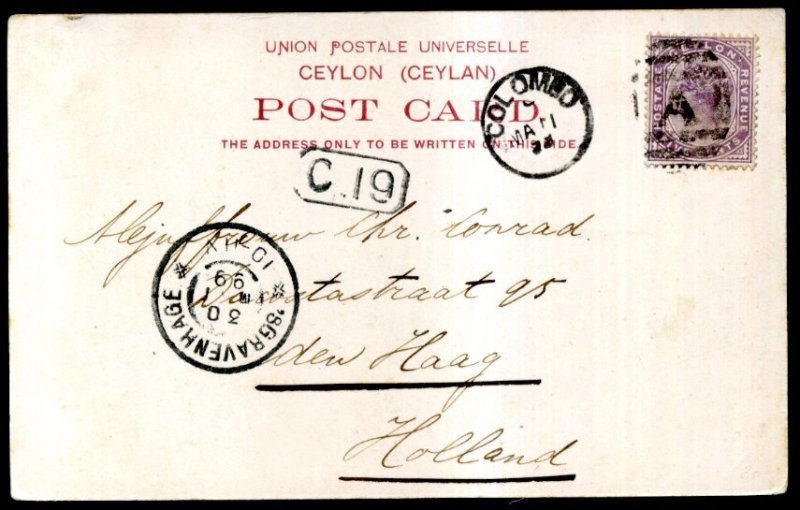 UNION POSTALE UNIVERSELLE
CEYLON (CEYLAN)
POST CARD
THE ADDRESS ONLY TO BE WRITTEN ON THIS SIDE.
COLOMBO
MA 11
POSTAGE CEYLON REVENUE
C.19
Mejuffrouw Chr. Conrad.
straat 95
den Haag
Holland
'SGRAVENHAGE
30
99